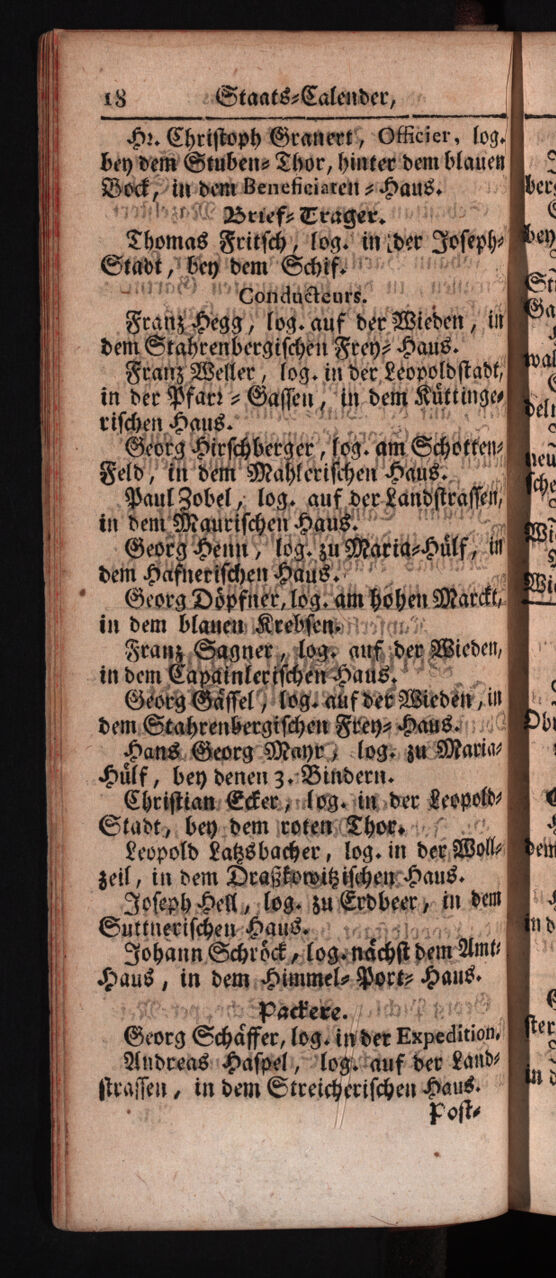 18 Staats-Calender,
Hr. Christoph Granert, Officier, log.
bey dem Stuben-Thor, hinter dem blauen
Bock, in dem Beneficiaten-Haus.
Brief-Trager.
Thomas Fritsch, log. in der Joseph-
Stadt, bey dem Schif.
Conducteurs.
Franz Hegg, log. auf der Wieden, in
dem Stahrenbergischen Frey-Haus.
Franz Weller, log. in der Leopoldstadt,
in der Pfarr-Gassen, in dem Küttinge-
rischen Haus.
Georg Hirschberger, log. am Schotten-
Feld, in dem Mahlerischen Haus.
Paul Zobel, log. auf der Landstrassen,
in dem Maurischen Haus.
Georg Henn, log. zu Maria-Hülf, in
dem Hafnerischen Haus.
Georg Döpfner, log. am hohen Marckt,
in dem blauen Krebsen.
Franz Sagner, log. auf der Wieden,
in dem Capainlerischen Haus.
Georg Gässel, log. auf der Wieden, in
dem Stahrenbergischen Frey-Haus.
Hans Georg Mayr, log. zu Maria-
Hülf, bey denen 3. Bindern.
Christian Ecker, log. in der Leopold-
Stadt, bey dem roten Thor.
Leopold Latzsbacher, log. in der Woll-
zeil, in dem Draßkowitzischen Haus.
Joseph Hell, log. zu Erdbeer, in dem
Suttnerischen Haus.
Johann Schröck, log. nächst dem Amt-
Haus, in dem Himmel-Port-Haus.
Packere.
Georg Schäffer, log. in der Expedition.
Andreas Haspel, log. auf der Land-
strassen, in dem Streicherischen Haus.
Post-